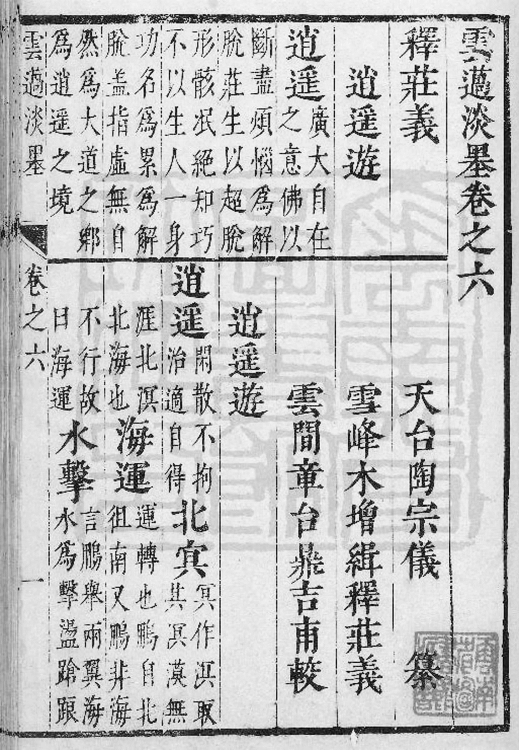 雲薖淡墨卷之六
天台陶宗儀 纂
雪峰木增緝釋莊義
雲間章台鼎吉甫較
釋莊義
逍遥遊
逍遥廣大自在
之意佛以
斷盡煩惱為解
脫莊生以超脫
形骸泯絕知巧
不以生人一身
功名為累為解
脫盖指虛無自
然為大道之鄉
為逍遥之境
逍遥遊
逍遥閑散不拘
治適自得
北㝠㝠作溟取
其㝠漠無
涯北溟
北海也
海運運轉也鵬自北
徂南又鵬非海
不行故
曰海運
水擊言鵬舉兩翼海
水為擊盪蹌踉
雲薖淡墨 卷之六 一